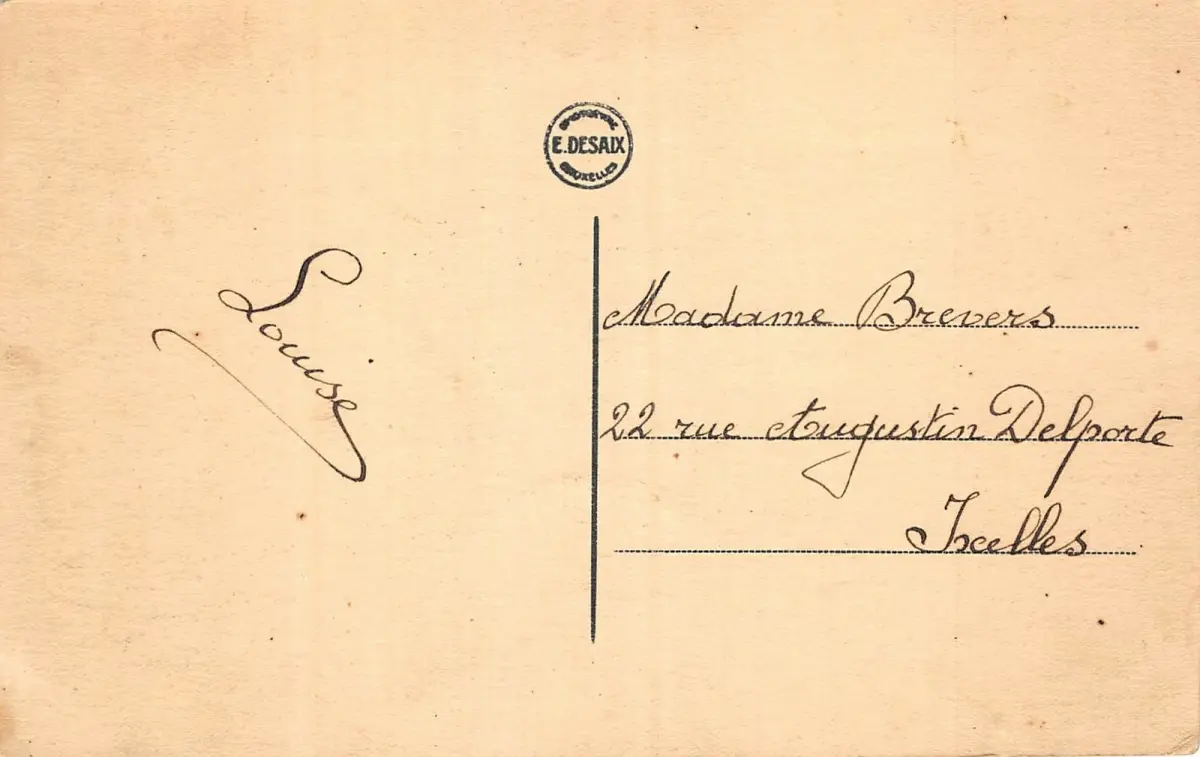 PHOTOTYPIE
E. DESAIX
BRUXELLES
Louise
Madame Brevers
22 rue Augustin Delporte
Ixelles